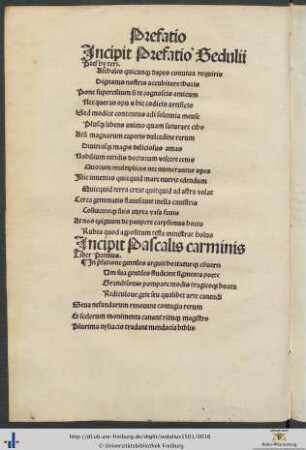 Prefatio
Incipit Prefatio Sedulii
Paschales quicunq; dapes conuiua requiris
Dignatus nostris accubitare thoris
Pone supercilium si te cognoscis amicum
Nec queras opus hic codicis artificis
Sed modice contentus adi solennia mense
Plusq; libens animo quam saturare cibo
Aut si magnarum caperis dulcedine rerum
Diuitiasq; magis deliciosus amas
Nobilium nitidis doctorum vescere cenis
Quorum multiplices nec numerantur opes
Illic inuenies quicquid mare nutrit edendum
Quicquid terra creat quicquid ad astra volat
Cerea gemmatis flauescunt mella canistris
Collucentq; suis aurea vasa fauis
Rubra quod appositum testa ministrat holus
Incipit Pascalis carminis
Liber Primus.
Cum sua gentiles studeant figmenta poete
Grandisonis pompare modis tragicoq; boatu
Ridiculoue gete seu qualibet arte canendi
Seua nefandarum renouent contagia rerum
Et scelerum monimenta canant rituq; magistro
Plurima nyliacis tradant mendacia biblis
http://dl.ub.uni-freiburg.de/diglit/sedulius1501/0016
© Universitätsbibliothek Freiburg
Baden-Württemberg